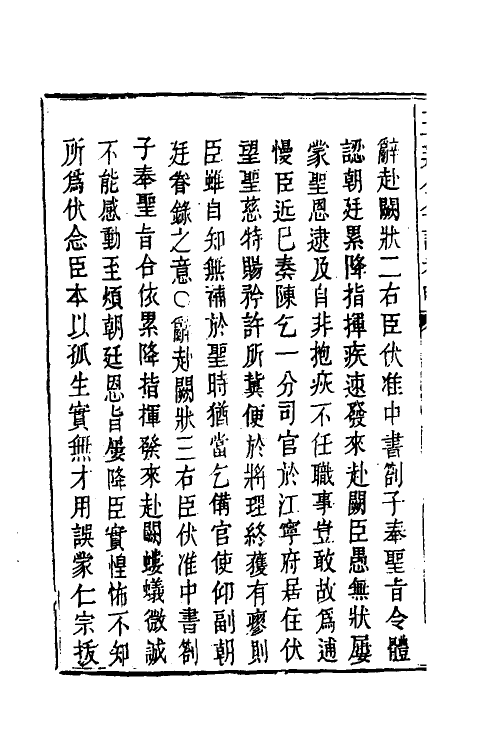 辭赴闕狀二右臣伏准中書劄子奉聖旨令體
認朝廷累降指揮疾速發來赴闕臣愚無狀屢
蒙聖恩逮及自非抱疾不任職事豈敢故為逋
慢臣近已奏陳乞一分司官於江寧府居住伏
望聖慈特賜矜許所冀便於將理終獲有瘳則
臣雖自知無補於聖時猶當乞備官使仰副朝
廷眷錄之意〇辭赴闕狀三右臣伏准中書劄
子奉聖旨合依累降指揮發來赴闕螻蟻微誠
不能感動至煩朝廷恩旨屢降臣實惶怖不知
所為伏念臣本以孤生實無才用誤蒙仁宗拔